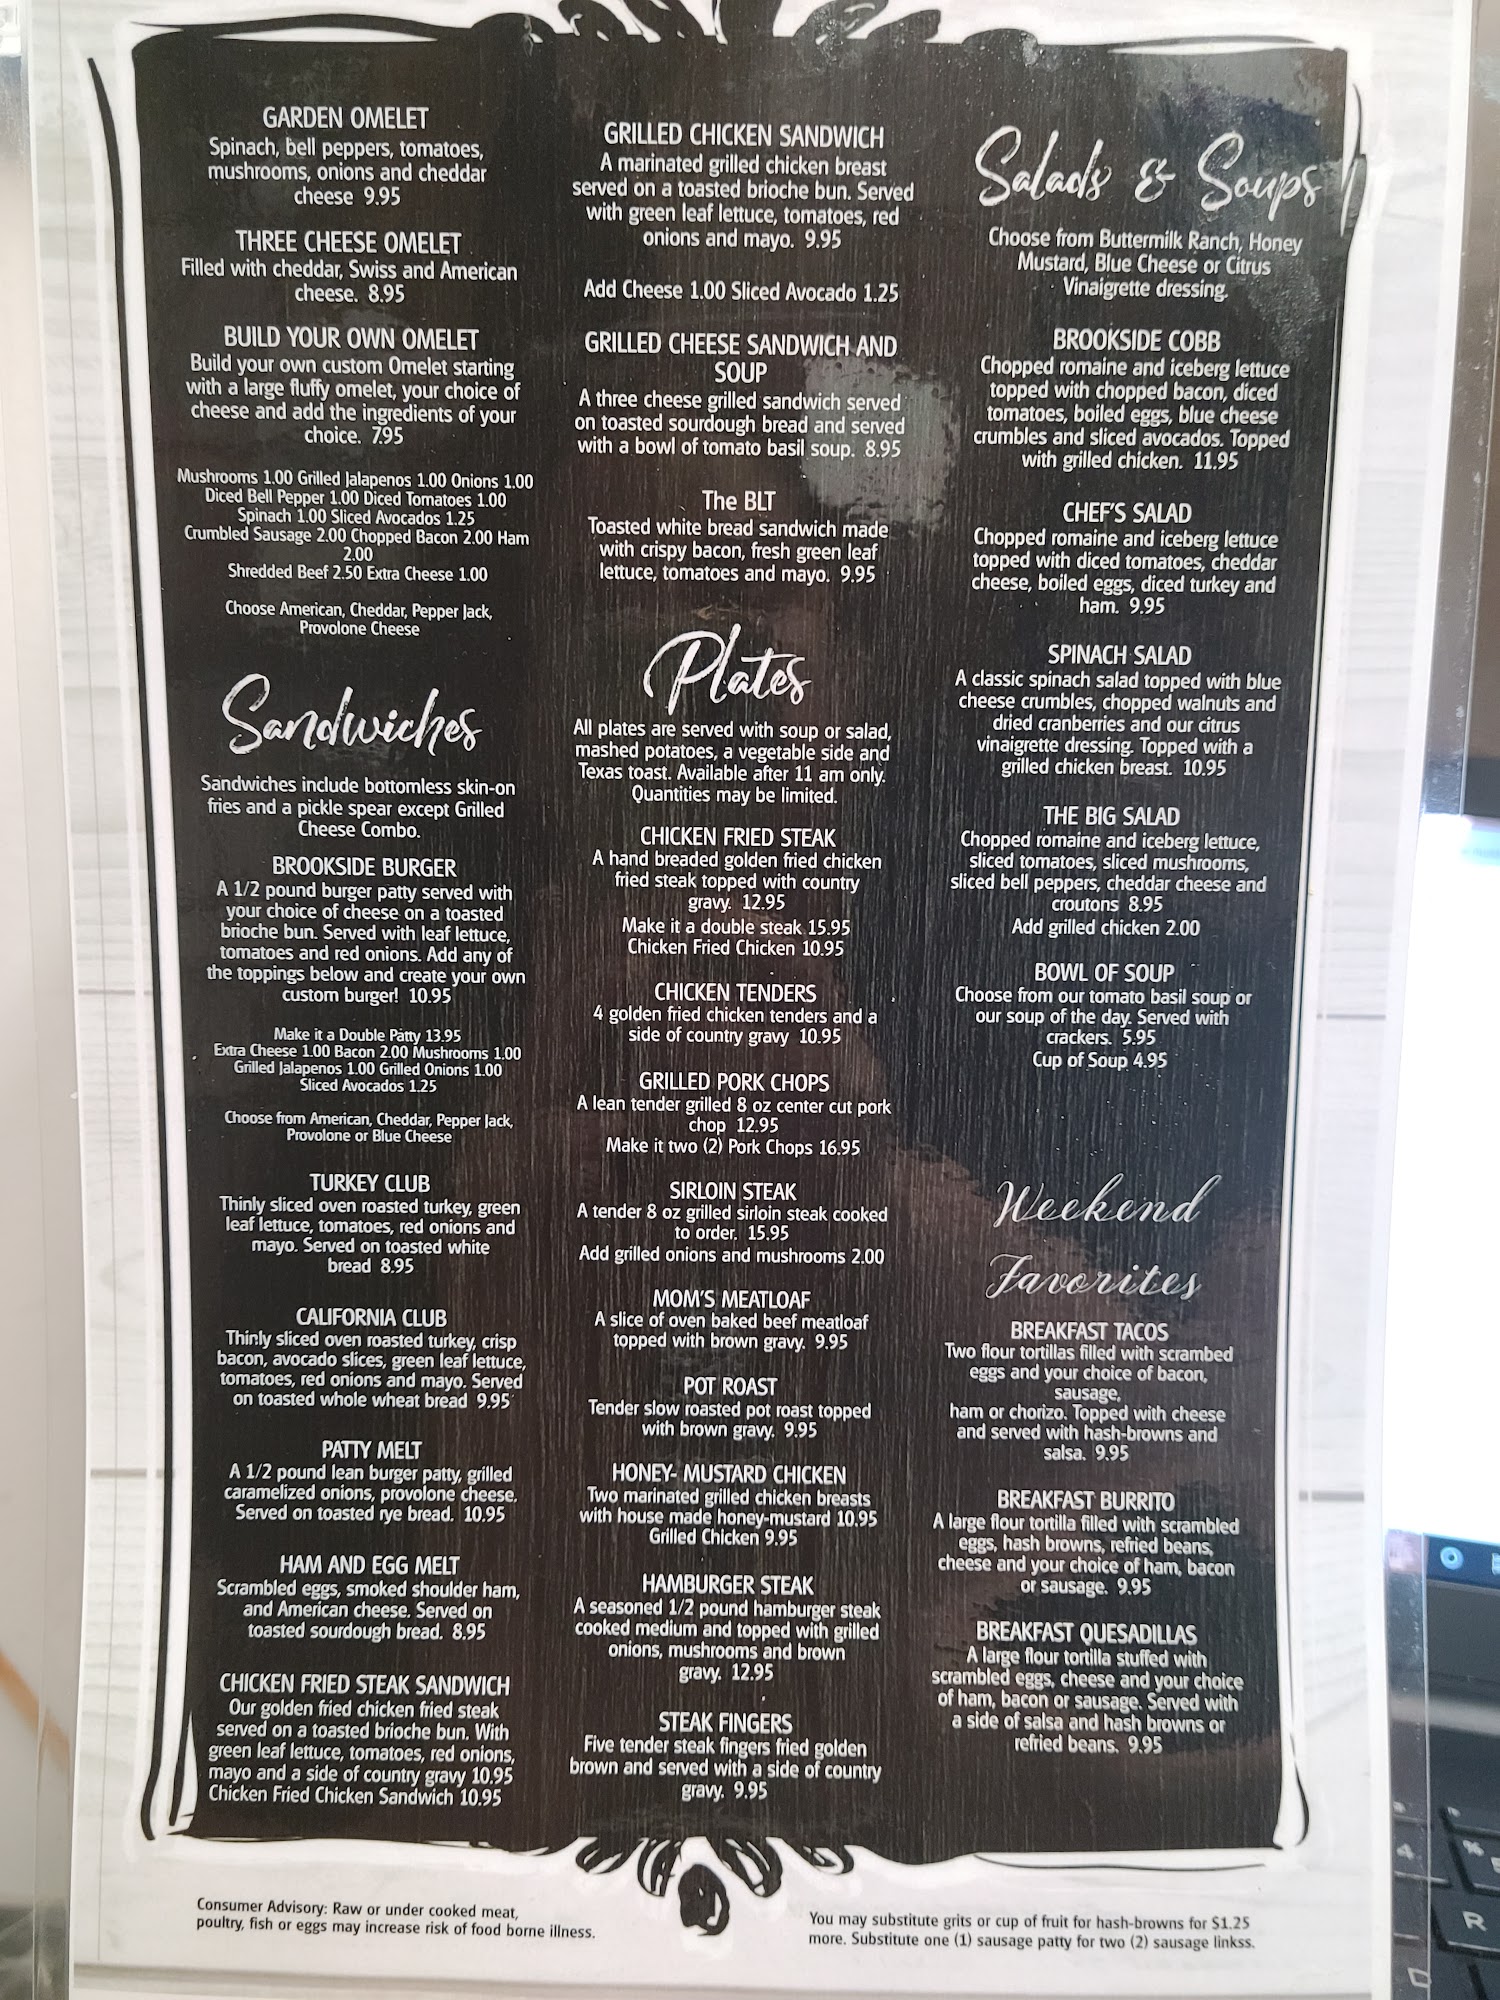 GARDEN OMELET
Spinach, bell peppers, tomatoes,
mushrooms, onions and cheddar
cheese 9.95
THREE CHEESE OMELET
Filled with cheddar, Swiss and American
cheese. 8.95
BUILD YOUR OWN OMELET
Build your own custom Omelet starting
with a large fluffy omelet, your choice of
cheese and add the ingredients of your
choice. 7.95
Mushrooms 1.00 Grilled Jalapenos 1.00 Onions 1.00
Diced Bell Pepper 1.00 Diced Tomatoes 1.00
Spinach 1.00 Sliced Avocados 1.25
Crumbled Sausage 2.00 Chopped Bacon 2.00 Ham
2.00
Shredded Beef 2.50 Extra Cheese 1.00
Choose American, Cheddar, Pepper Jack,
Provolone Cheese
Sandwiches
Sandwiches include bottomless skin-on
fries and a pickle spear except Grilled
Cheese Combo.
BROOKSIDE BURGER
A 1/2 pound burger patty served with
your choice of cheese on a toasted
brioche bun. Served with leaf lettuce,
tomatoes and red onions. Add any of
the toppings below and create your own
custom burger! 10.95
Make it a Double Patty 13.95
Extra Cheese 1.00 Bacon 2.00 Mushrooms 1.00
Grilled Jalapenos 1.00 Grilled Onions 1.00
Sliced Avocados 1.25
Choose from American, Cheddar, Pepper Jack,
Provolone or Blue Cheese
TURKEY CLUB
Thinly sliced oven roasted turkey, green
leaf lettuce, tomatoes, red onions and
mayo. Served on toasted white
bread 8.95
CALIFORNIA CLUB
Thinly sliced oven roasted turkey, crisp
bacon, avocado slices, green leaf lettuce,
tomatoes, red onions and mayo. Served
on toasted whole wheat bread 9.95
PATTY MELT
A 1/2 pound lean burger patty, grilled
caramelized onions, provolone cheese.
Served on toasted rye bread. 10.95
HAM AND EGG MELT
Scrambled eggs, smoked shoulder ham,
and American cheese. Served on
toasted sourdough bread. 8.95
CHICKEN FRIED STEAK SANDWICH
Our golden fried chicken fried steak
served on a toasted brioche bun. With
green leaf lettuce, tomatoes, red onions,
mayo and a side of country gravy 10.95
Chicken Fried Chicken Sandwich 10.95
GRILLED CHICKEN SANDWICH
A marinated grilled chicken breast
served on a toasted brioche bun. Served
with green leaf lettuce, tomatoes, red
onions and mayo. 9.95
Add Cheese 1.00 Sliced Avocado 1.25
GRILLED CHEESE SANDWICH AND
SOUP
A three cheese grilled sandwich served
on toasted sourdough bread and served
with a bowl of tomato basil soup. 8.95
The BLT
Toasted white bread sandwich made
with crispy bacon, fresh green leaf
lettuce, tomatoes and mayo. 9.95
Plates
All plates are served with soup or salad,
mashed potatoes, a vegetable side and
Texas toast. Available after 11 am only.
Quantities may be limited.
CHICKEN FRIED STEAK
A hand breaded golden fried chicken
fried steak topped with country
gravy. 12.95
Make it a double steak 15.95
Chicken Fried Chicken 10.95
CHICKEN TENDERS
4 golden fried chicken tenders and a
side of country gravy 10.95
GRILLED PORK CHOPS
A lean tender grilled 8 oz center cut pork
chop 12.95
Make it two (2) Pork Chops 16.95
SIRLOIN STEAK
A tender 8 oz grilled sirloin steak cooked
to order. 15.95
Add grilled onions and mushrooms 2.00
MOM'S MEATLOAF
A slice of oven baked beef meatloaf
topped with brown gravy. 9.95
POT ROAST
Tender slow roasted pot roast topped
with brown gravy. 9.95
HONEY- MUSTARD CHICKEN
Two marinated grilled chicken breasts
with house made honey-mustard 10.95
Grilled Chicken 9.95
HAMBURGER STEAK
A seasoned 1/2 pound hamburger steak
cooked medium and topped with grilled
onions, mushrooms and brown
gravy. 12.95
STEAK FINGERS
Five tender steak fingers fried golden
brown and served with a side of country
gravy. 9.95
Salads & Soups
Choose from Buttermilk Ranch, Honey
Mustard, Blue Cheese or Citrus
Vinaigrette dressing.
BROOKSIDE COBB
Chopped romaine and iceberg lettuce
topped with chopped bacon, diced
tomatoes, boiled eggs, blue cheese
crumbles and sliced avocados. Topped
with grilled chicken. 11.95
CHEF'S SALAD
Chopped romaine and iceberg lettuce
topped with diced tomatoes, cheddar
cheese, boiled eggs, diced turkey and
ham. 9.95
SPINACH SALAD
A classic spinach salad topped with blue
cheese crumbles, chopped walnuts and
dried cranberries and our citrus
vinaigrette dressing. Topped with a
grilled chicken breast. 10.95
THE BIG SALAD
Chopped romaine and iceberg lettuce,
sliced tomatoes, sliced mushrooms,
sliced bell peppers, cheddar cheese and
croutons 8.95
Add grilled chicken 2.00
BOWL OF SOUP
Choose from our tomato basil soup or
our soup of the day. Served with
crackers. 5.95
Cup of Soup 4.95
Weekend
Favorites
BREAKFAST TACOS
Two flour tortillas filled with scrambed
eggs and your choice of bacon,
sausage,
ham or chorizo. Topped with cheese
and served with hash-browns and
salsa. 9.95
BREAKFAST BURRITO
A large flour tortilla filled with scrambled
eggs, hash browns, refried beans,
cheese and your choice of ham, bacon
or sausage. 9.95
BREAKFAST QUESADILLAS
A large flour tortilla stuffed with
scrambled eggs, cheese and your choice
of ham, bacon or sausage. Served with
a side of salsa and hash browns or
refried beans. 9.95
Consumer Advisory: Raw or under cooked meat,
poultry, fish or eggs may increase risk of food borne illness.
You may substitute grits or cup of fruit for hash-browns for $1.25
more. Substitute one (1) sausage patty for two (2) sausage linkss.
R